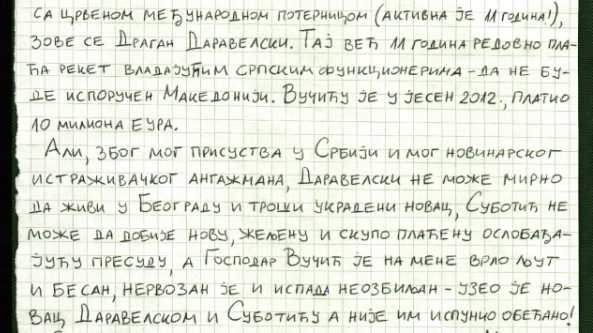 са црвеном међународном потерницом (активна је 11 година!),
зове се Драган Даравелски. Тај већ 11 година редовно пла-
ћа рекет владајућим српским функционерима - да не бу-
де испоручен Македонији. Вучићу је у јесен 2012., платио
10 милиона еура.
Али, због мог присуства у Србији и мог новинарског
истраживачког ангажмана, Даравелски не може мирно
да живи у Београду и троши украдени новац, Суботић не
може да добије нову, жељену и скупо плаћену ослобађа-
јућу пресуду, а Господар Вучић је на мене врло љут
и бесан, нервозан је и испада неозбиљан - узео је но-
вац Даравелском и Суботићу а није им испунио обећано!